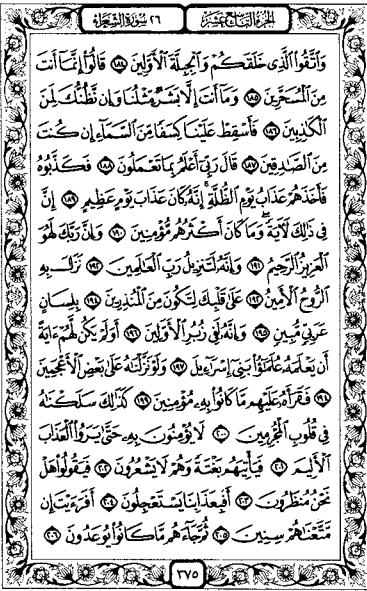 الجزء التاسع عشر ٢٦ سورة الشعراء
وَاتَّقُوا الَّذِي خَلَقَكُمْ وَالْجِبِلَّةَ الْأَوَّلِينَ ١٨٤ قَالُوا إِنَّمَا أَنتَ
مِنَ الْمُسَحَّرِينَ ١٨٥ وَمَا أَنتَ إِلَّا بَشَرٌ مِّثْلُنَا وَإِن نَّظُنُّكَ لَمِنَ
الْكَاذِبِينَ ١٨٦ فَأَسْقِطْ عَلَيْنَا كِسَفًا مِّنَ السَّمَاءِ إِن كُنتَ
مِنَ الصَّادِقِينَ ١٨٧ قَالَ رَبِّي أَعْلَمُ بِمَا تَعْمَلُونَ ١٨٨ فَكَذَّبُوهُ
فَأَخَذَهُمْ عَذَابُ يَوْمِ الظُّلَّةِ إِنَّهُ كَانَ عَذَابَ يَوْمٍ عَظِيمٍ ١٨٩ إِنَّ
فِي ذَٰلِكَ لَآيَةً وَمَا كَانَ أَكْثَرُهُم مُّؤْمِنِينَ ١٩٠ وَإِنَّ رَبَّكَ لَهُوَ
الْعَزِيزُ الرَّحِيمُ ١٩١ وَإِنَّهُ لَتَنزِيلُ رَبِّ الْعَالَمِينَ ١٩٢ نَزَلَ بِهِ
الرُّوحُ الْأَمِينُ ١٩٣ عَلَىٰ قَلْبِكَ لِتَكُونَ مِنَ الْمُنذِرِينَ ١٩٤ بِلِسَانٍ
عَرَبِيٍّ مُّبِينٍ ١٩٥ وَإِنَّهُ لَفِي زُبُرِ الْأَوَّلِينَ ١٩٦ أَوَلَمْ يَكُن لَّهُمْ ءَايَةً
أَن يَعْلَمَهُ عُلَمَٰٓؤُا بَنِي إِسْرَائِيلَ ١٩٧ وَلَوْ نَزَّلْنَاهُ عَلَىٰ بَعْضِ الْأَعْجَمِينَ
١٩٨ فَقَرَأَهُ عَلَيْهِم مَّا كَانُوا بِهِ مُؤْمِنِينَ ١٩٩ كَذَٰلِكَ سَلَكْنَاهُ
فِي قُلُوبِ الْمُجْرِمِينَ ٢٠٠ لَا يُؤْمِنُونَ بِهِ حَتَّىٰ يَرَوُا الْعَذَابَ
الْأَلِيمَ ٢٠١ فَيَأْتِيَهُم بَغْتَةً وَهُمْ لَا يَشْعُرُونَ ٢٠٢ فَيَقُولُوا هَلْ
نَحْنُ مُنظَرُونَ ٢٠٣ أَفَبِعَذَابِنَا يَسْتَعْجِلُونَ ٢٠٤ أَفَرَءَيْتَ إِن
مَّتَّعْنَاهُمْ سِنِينَ ٢٠٥ ثُمَّ جَاءَهُم مَّا كَانُوا يُوعَدُونَ ٢٠٦
٣٧٥